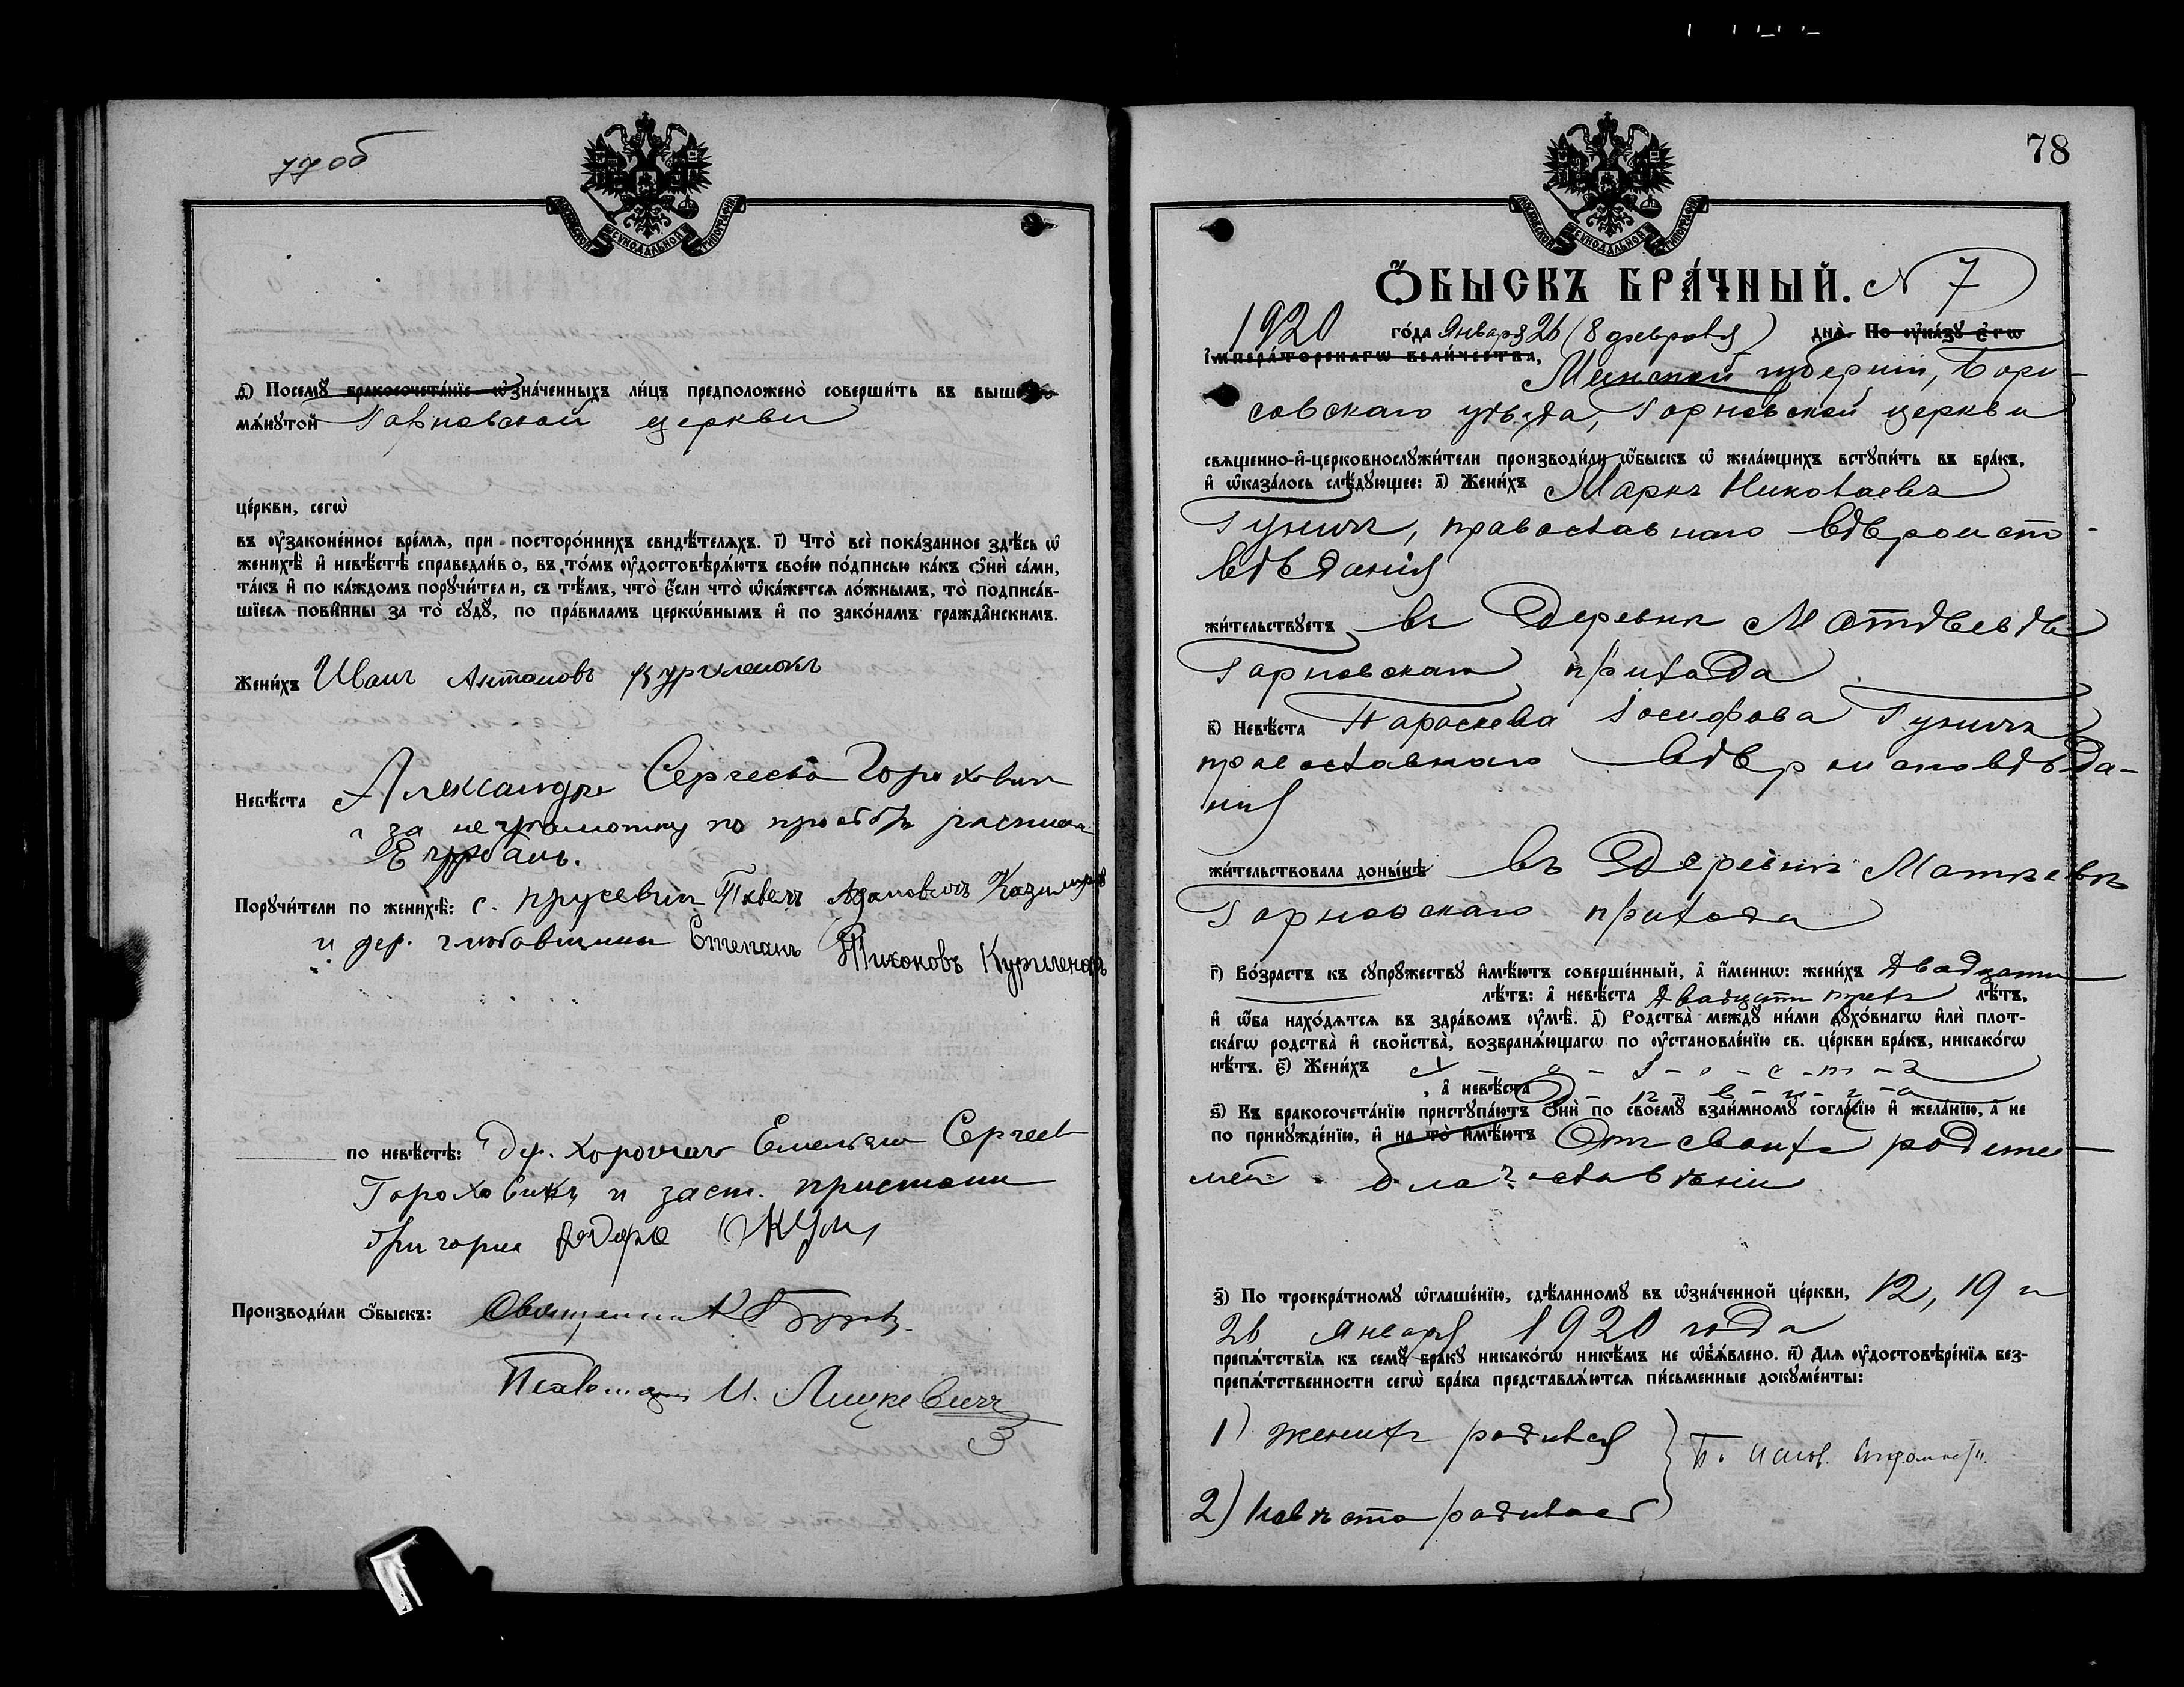 77 об
МОСКОВСКОЙ СѴНОДАЛЬНОЙ ТИПОГРАФІИ
д҃) Посемꙋ̀ бракосочета́нїе ѡ҆зна́ченныхъ ли́цъ предположено̀ соверши́ть въ вышеѹпо-
мѧ́нꙋтой Горновской церкви
це́ркви, сегѡ̀
въ ѹ҆законе́нное вре́мѧ, при посторо́ннихъ свидѣ́телѧхъ. і҃) Что̀ всѐ пока́занное здѣ́сь ѡ҆
женихѣ̀ и҆ невѣ́стѣ справедли́во, въ то́мъ ѹ҆достовѣрѧ́ютъ свое́ю по́дписью ка́къ ѻ҆нѝ са́ми,
та́къ и҆ по ка́ждомъ порꙋчи́тели, съ тѣ́мъ, что̀ є҆́сли что̀ ѡ҆ка́жетсѧ ло́жнымъ, то̀ подписа́в-
шїесѧ пови́нны за то̀ сꙋдꙋ̀, по пра́виламъ церкѡ́внымъ и҆ по зако́намъ гражда̑нскимъ.
Жени́хъ Иванъ Антоновъ Куриленокъ
Невѣ́ста Александра Сергеева Горохович
а за неграмотну по просьбѣ росписал
Е Курбанъ.
Порꙋчи́тели по женихѣ̀: с. Прусевич Павелъ Адамовичъ Казимиров
и дер. Степанъ Тихоновъ Куриленокъ
по невѣ́стѣ: Дер. Емельян Сергеев
Гороховикъ и заст. пристани
Григория
Производи́ли ѻ҆́быскъ: Священник
Псаломщик И. Лицкевичъ
78
МОСКОВСКОЙ СѴНОДАЛЬНОЙ ТИПОГРАФІИ
Ѻ҆́БЫСКЪ БРА́ЧНЫЙ. N 7
1920 го́да Января 26 (8 февраля) днѧ̀. По ѹ҆ка́зꙋ є҆гѡ̀
і҆мпера́торскагѡ вели́чества, Минской губерніи, Бори-
совскаго уѣзда, Горновской церкви
свѧщенно-и҆-церковнослꙋжи́тели производи́ли ѻ҆́быскъ ѡ҆ жела́ющихъ встꙋпи́ть въ бра́къ,
и҆ ѡ҆каза́лось слѣ́дꙋющее: а҃) Жени́хъ Маркъ Николаевъ
Гуничъ, православнаго вѣроиспо-
вѣданія
жи́тельствꙋетъ въ Деревнѣ Матвѣевѣ
Горновскаго прихода
в҃) Невѣ́ста Параскева Іосифова Гуничъ
православнаго вѣроисповѣда-
нія
жи́тельствовала донын́ѣ въ Деревнѣ Матвѣевѣ
Горновскаго прихода
г҃) Во́зрастъ къ сꙋпрꙋ́жествꙋ и҆мѣ́ютъ соверше́нный, а҆ и҆́меннѡ: жени́хъ двадцати
лѣ́тъ: а҆ невѣ́ста двадцати трехъ лѣ́тъ,
и҆ ѻ҆́ба нахо́дѧтсѧ въ здра́вомъ ѹ҆мѣ̀. д҃) Родства̀ междꙋ̀ ни́ми дꙋхо́внагѡ и҆лѝ плот-
ска́гѡ родства̀ и҆ свойства̀, возбранѧ́ющагѡ по ѹ҆становле́нїю св. це́ркви бра́къ, никако́гѡ
нѣ́тъ. є҃) Жени́хъ х - о - л - о - с - т - а
, а҆ невѣ́ста д - ѣ - в - и - ц - а
ѕ҃) Къ бракосочета́нїю пристꙋпа́ютъ ѻ҆нѝ по своемꙋ̀ взаи́мномꙋ согла́сїю и҆ жела́нїю, а҆ не
по принꙋжде́нїю, и҆ на то̀ и҆мѣ́ютъ Отъ своихъ родите-
лей благословленіи
з҃) По троекра́тномꙋ ѡ҆глаше́нїю, сдѣ́ланномꙋ въ ѡ҆зна́ченной це́ркви, 12, 19 и
26 Января 1920 года
препѧ́тствїѧ къ семꙋ̀ бра́кꙋ никако́гѡ никѣ́мъ не ѡ҆б̾ѧ́влено. и҃) Длѧ ѹ҆достовѣре́нїѧ без-
препѧ́тственности сегѡ̀ бра́ка представлѧ́ютсѧ пи́сьменные докꙋме́нты:
1) Женихъ родился
По испов.
2) Невѣста родилась